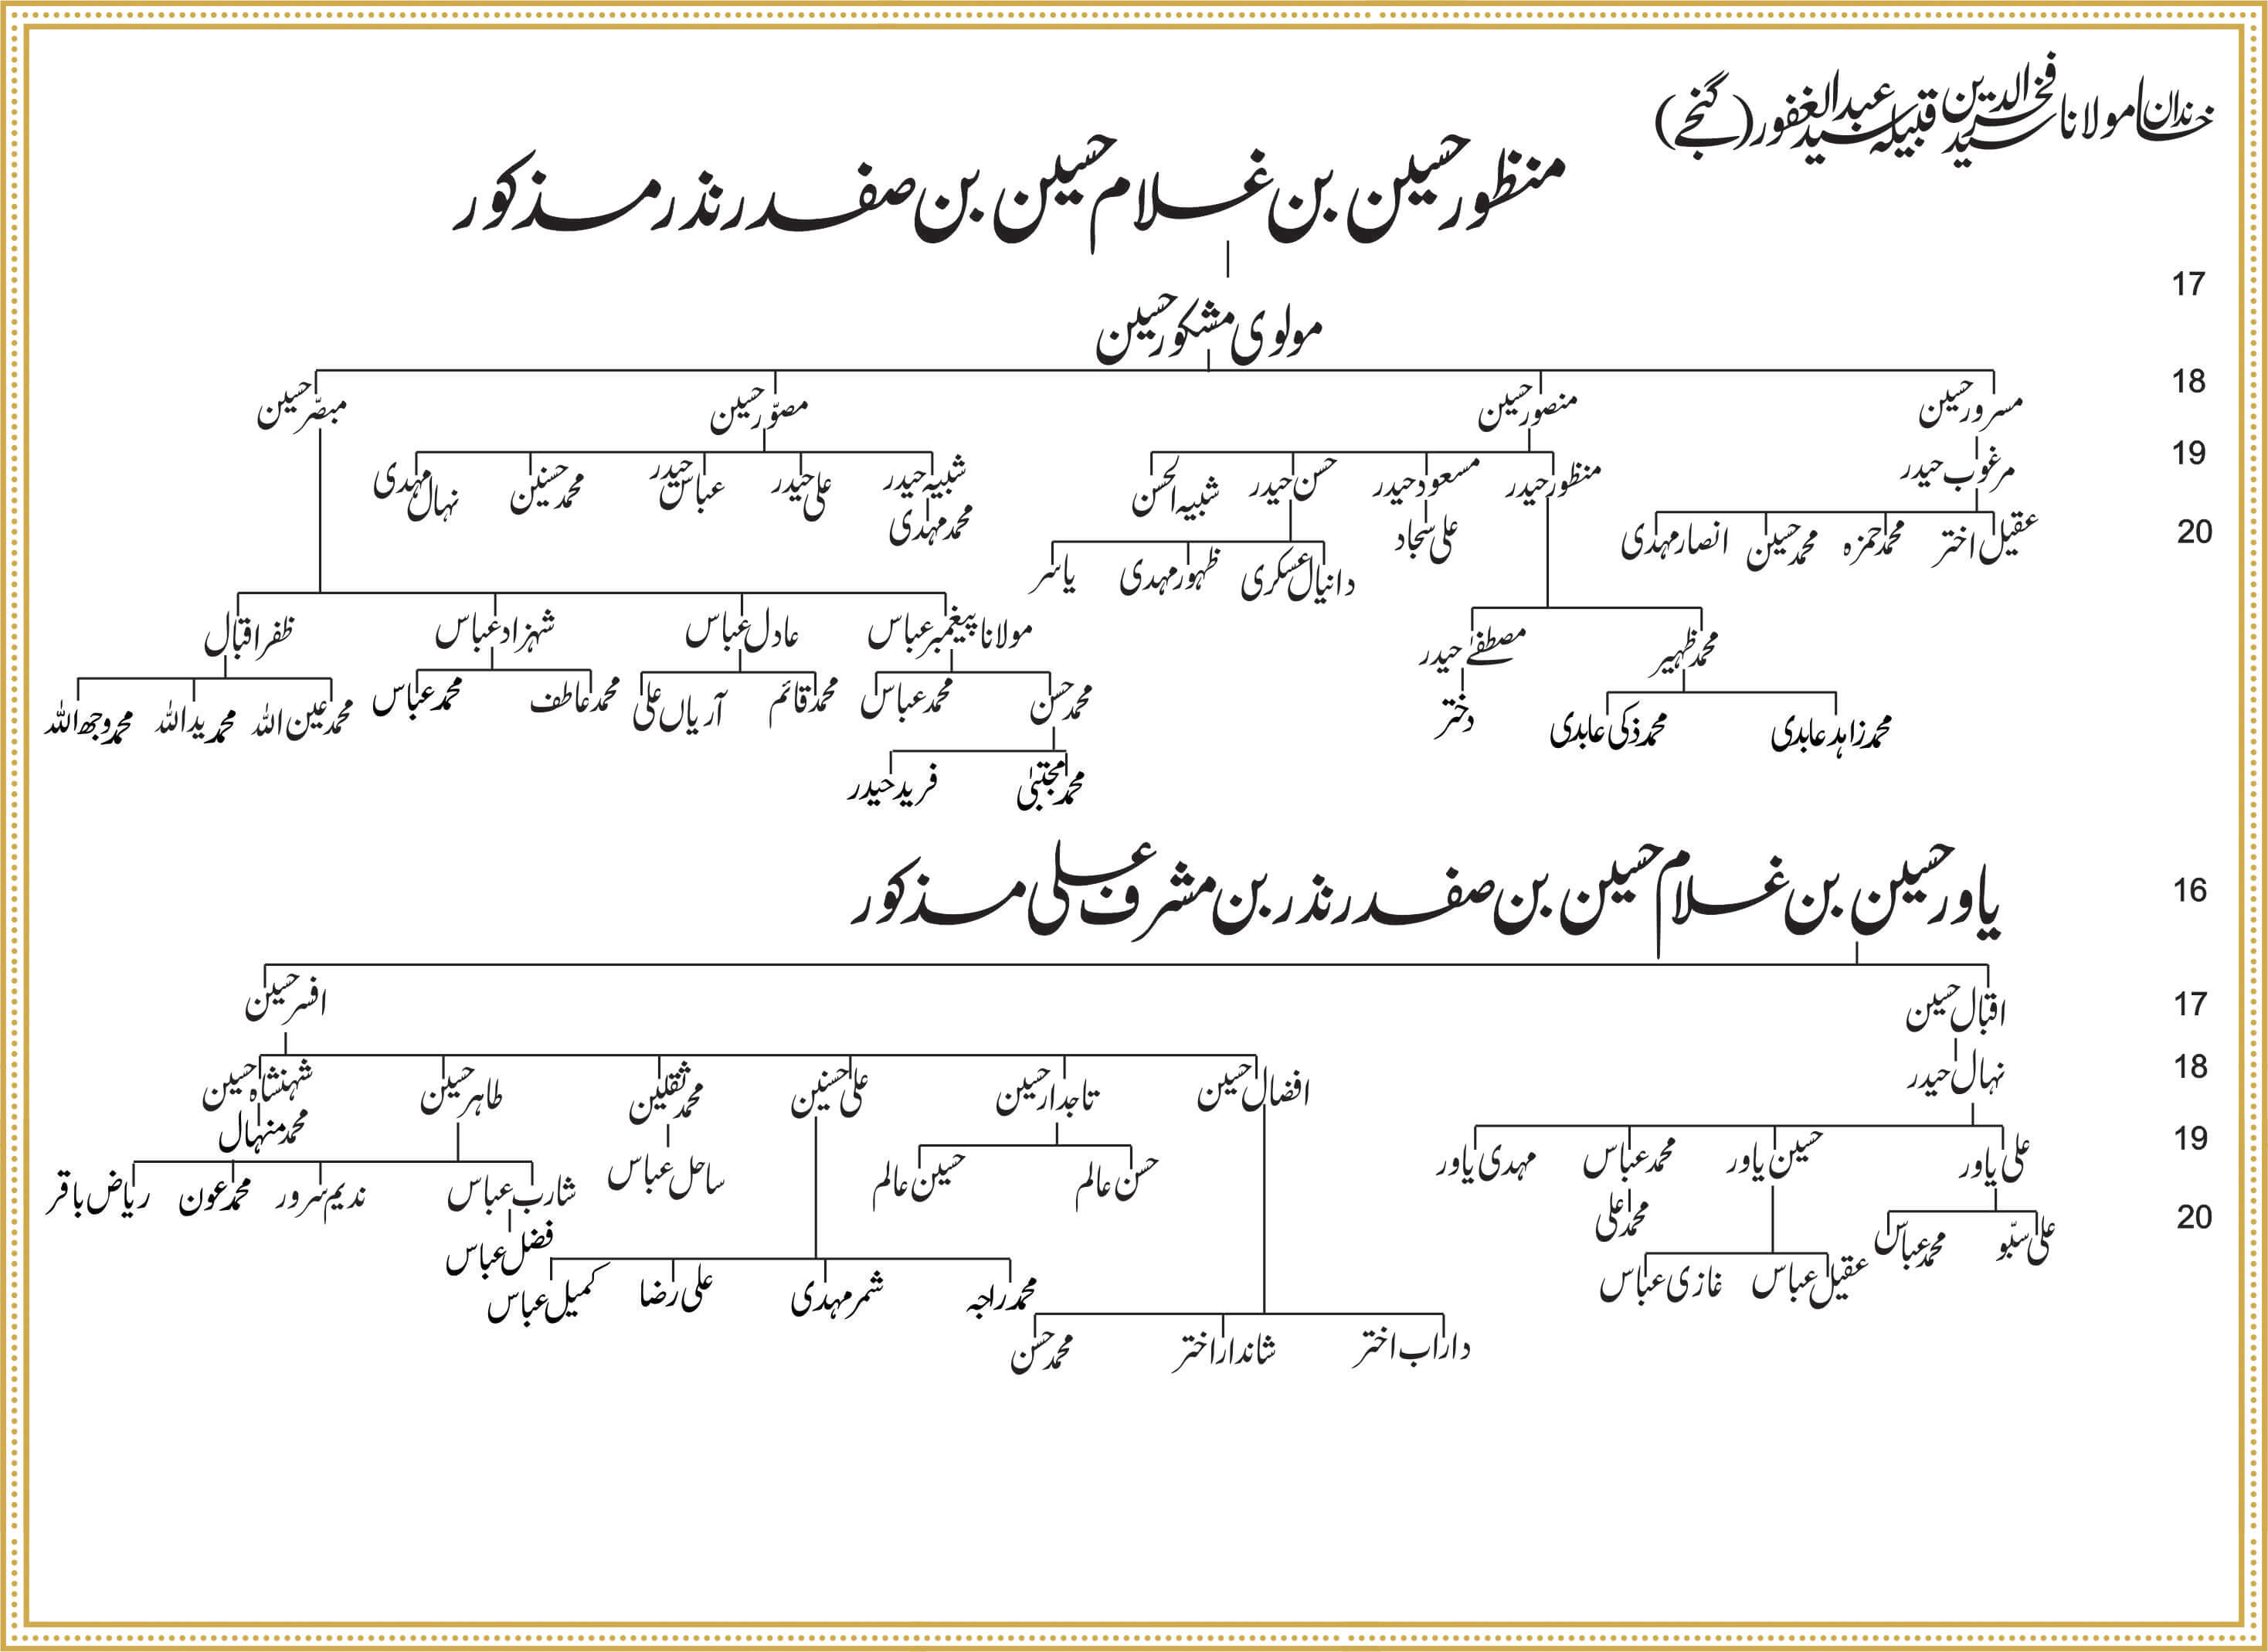 خاندان مولانا سید فخرالدین قبیلہ سید عبدالغفور (گنجے)
منظور حسین بن غلام حسین بن صفدر نذر مذکور
17
مولوی مشکور حسین
18
مسرور حسین منصور حسین مصوّر حسین مبصّر حسین
19
مرغوب حیدر منظور حیدر مسعود حیدر حسن حیدر شبیہ الحسن شبیہ حیدر علی حیدر عباس حیدر محمد حسنین نہال مہدی
20
عقیل اختر محمد حمزہ محمد حسین انصار مہدی علی سجاد محمد مہدی
دانیال عسکری ظہور مہدی یاسر
مولانا پیغمبر عباس عادل عباس شہزاد عباس ظفر اقبال
محمد ظہیر مصطفےٰ حیدر
محمد حسن محمد عباس محمد قائم آریاں علی محمد عاطف محمد عباس محمد عین اللہ محمد ید اللہ محمد وجھ اللہ
محمد زاہد عابدی محمد ذکی عابدی دختر
محمد مجتبیٰ فرید حیدر
یاور حسین بن غلام حسین بن صفدر نذر بن مشرف علی مذکور
16
اقبال حسین افسر حسین
17
نہال حیدر افضال حسین تاجدار حسین علی حسنین محمد ثقلین طاہر حسین شہنشاہ حسین
18
محمد منہال
علی یاور حسین یاور محمد عباس مہدی یاور حسن عالم حسین عالم ساحل عباس شارب عباس ندیم سرور محمد عون ریاض باقر
19
علی سبّو محمد عباس محمد علی فضل عباس
20
عقیل عباس غازی عباس محمد راجہ شمر مہدی علی رضا کمیل عباس
داراب اختر شاندار اختر محمد حسن